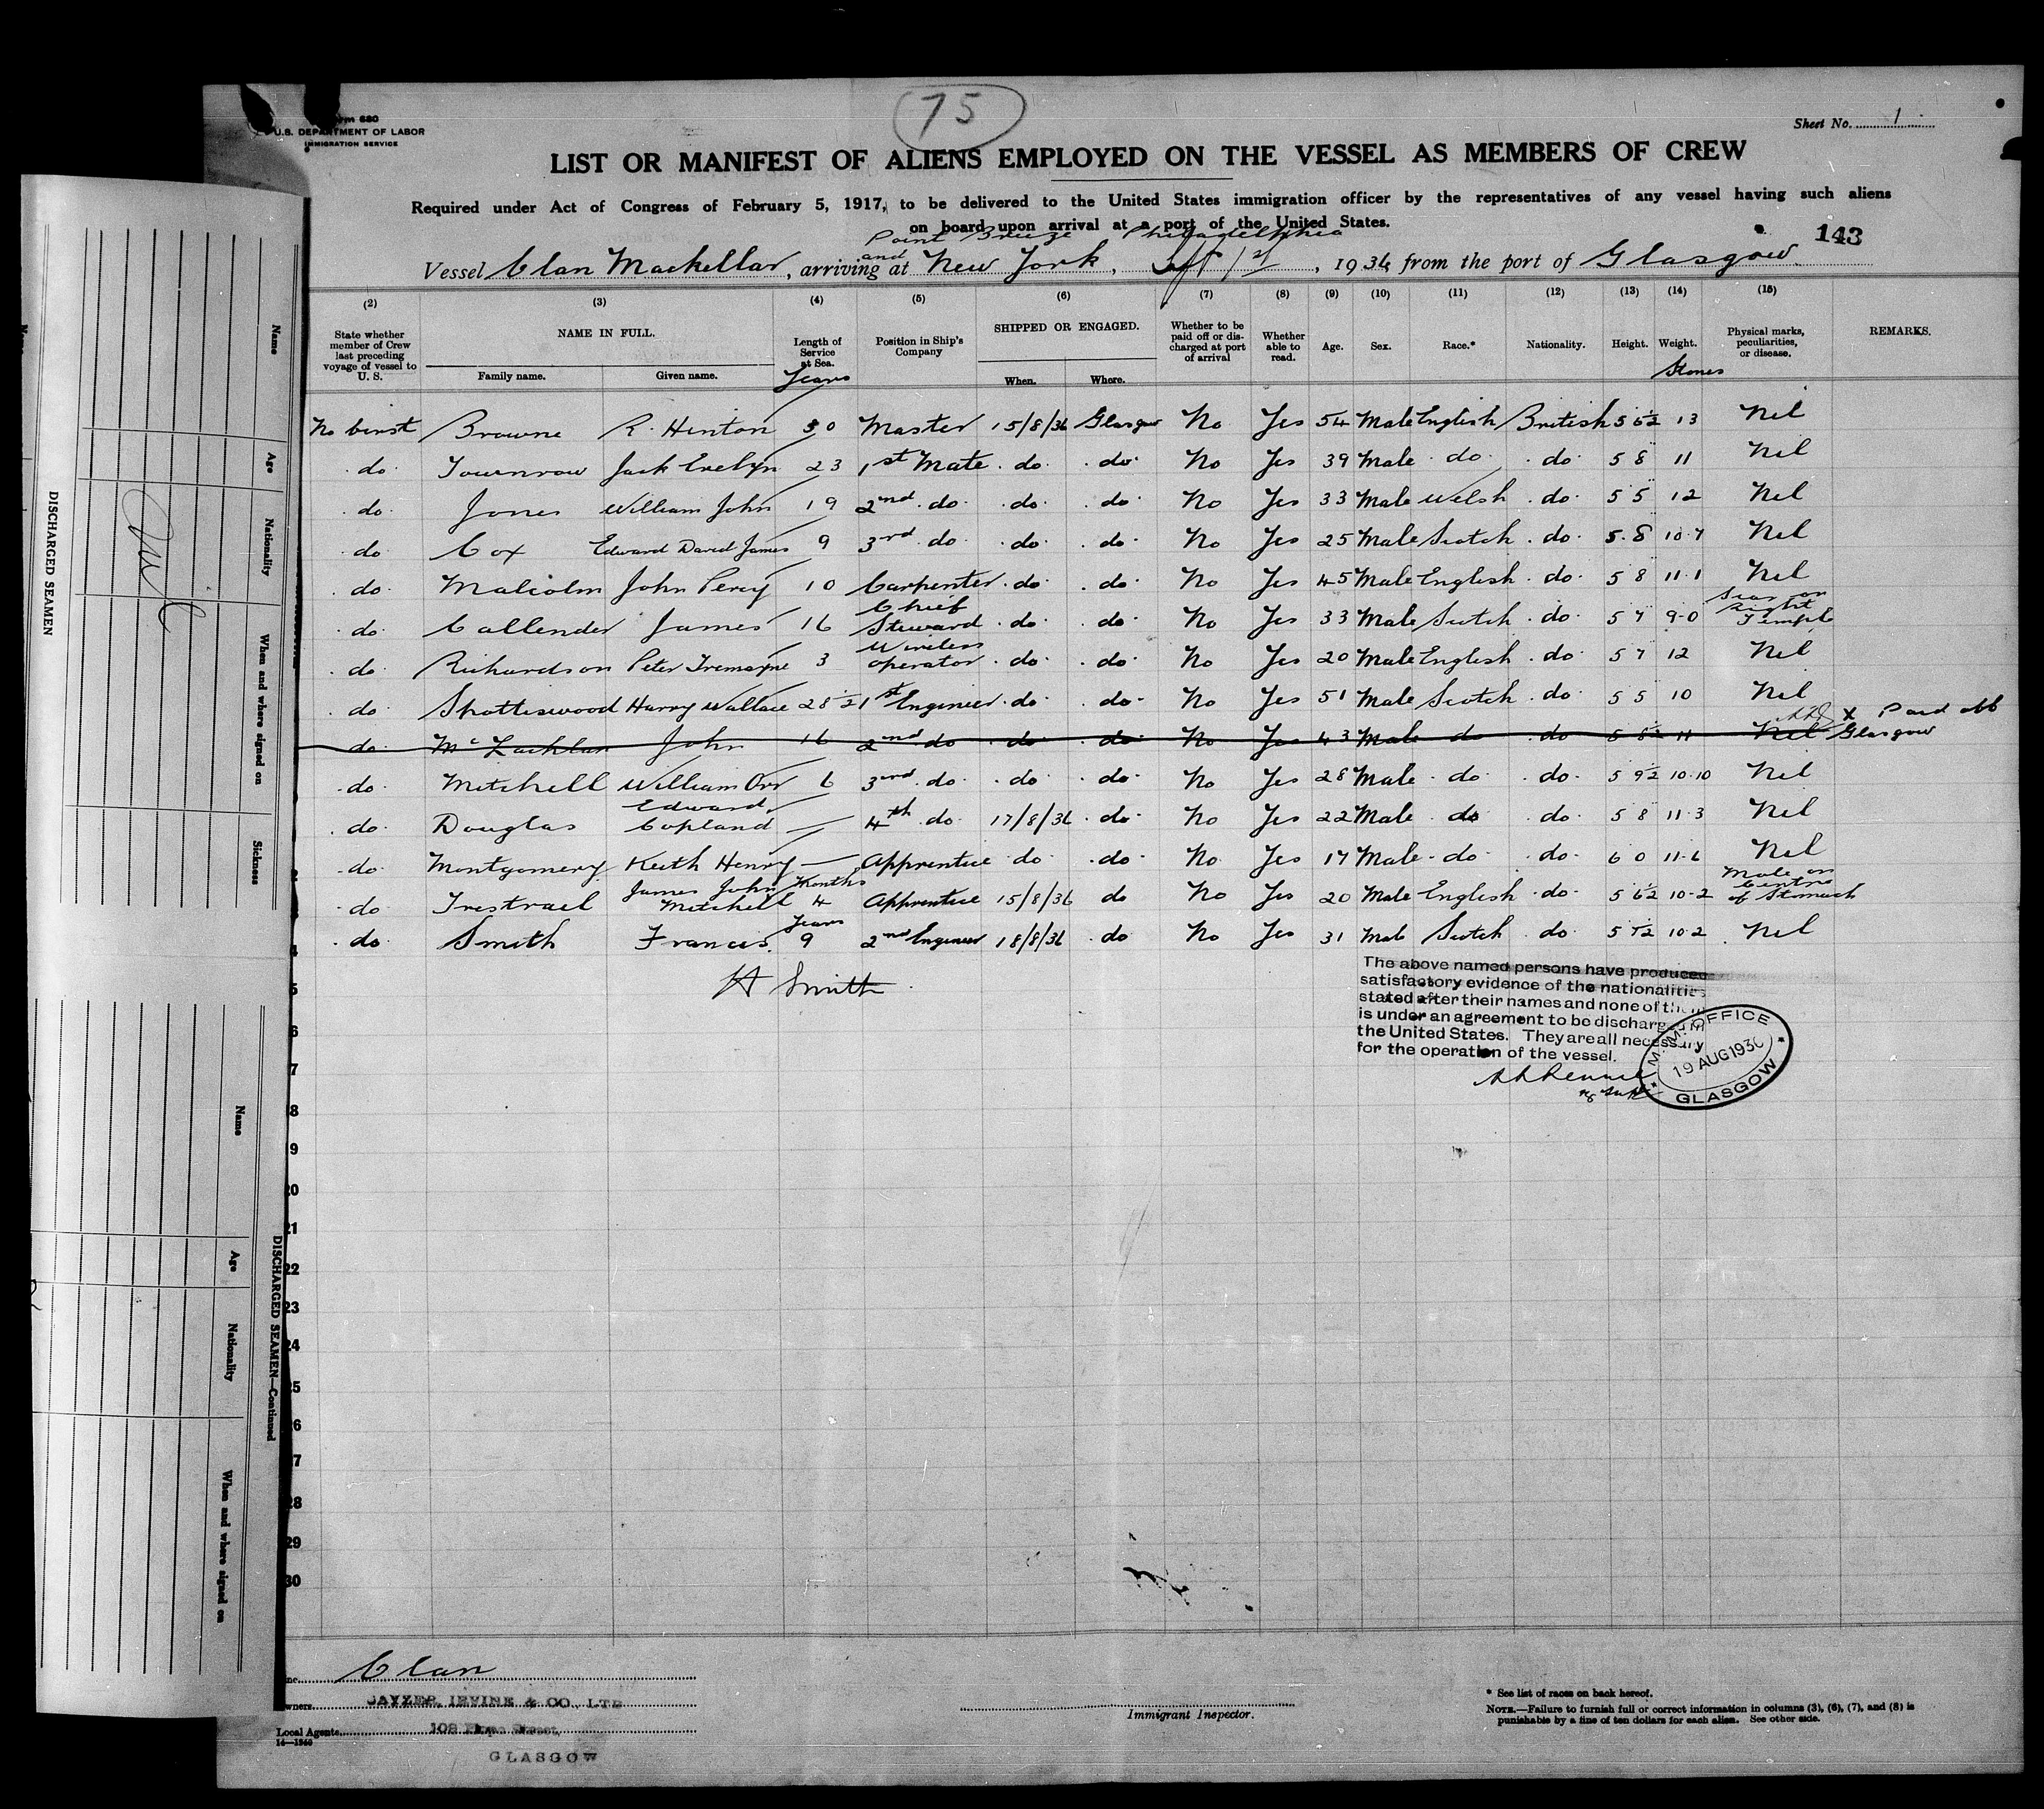 75
Form 680
U.S. DEPARTMENT OF LABOR
IMMIGRATION SERVICE
Sheet No. 1
LIST OR MANIFEST OF ALIENS EMPLOYED ON THE VESSEL AS MEMBERS OF CREW
Required under Act of Congress of February 5, 1917, to be delivered to the United States immigration officer by the representatives of any vessel having such aliens
on board upon arrival at a port of the United States.
Point Breeze Philadelphia
143
and
Vessel Clan Mackellar, arriving at New York, Sept 1st, 1936, from the port of Glasgow
(2) (3) (4) (5) (6) (7) (8) (9) (10) (11) (12) (13) (14) (15)
State whether member of Crew last preceding voyage of vessel to U. S.
NAME IN FULL.
Family name. Given name.
Length of Service at Sea.
Years
Position in Ship's Company
SHIPPED OR ENGAGED.
When. Where.
Whether to be paid off or discharged at port of arrival
Whether able to read.
Age.
Sex.
Race.*
Nationality.
Height.
Weight.
Stones
Physical marks, peculiarities, or disease.
REMARKS.
Browne R. Hinton 30 Master 15/8/36 Glasgow No Yes 54 Male English British 5 6½ 13 Nil
do Townrow Jack Evelyn 23 1st Mate do do No Yes 39 Male do do 5 8 11 Nil
do Jones William John 19 2nd do do do No Yes 33 Male Welsh do 5 5 12 Nil
do Cox Edward David James 9 3rd do do do No Yes 25 Male Scotch do 5 8 10.7 Nil
do Malcolm John Percy 10 Carpenter do do No Yes 45 Male English do 5 8 11.1 Nil
do Callender James 16 Chief Steward do do No Yes 33 Male Scotch do 5 7 9-0 Scar on Right Temple
do Richardson Peter Tremayne 3 Wireless operator do do No Yes 20 Male English do 5 7 12 Nil
do Spottiswood Harry Wallace 28½ 1st Engineer do do No Yes 51 Male Scotch do 5 5 10 Nil
do McLachlan John 16 2nd do do do No Yes 43 Male do do 5 8½ 11 Nil X Paid off Glasgow
do Mitchell William Orr 6 3rd do do do No Yes 28 Male do do 5 9½ 10.10 Nil
do Douglas Edward Copland — 4th do 17/8/36 do No Yes 22 Male do do 5 8 11.3 Nil
do Montgomery Keith Henry — Apprentice do do No Yes 17 Male do do 6 0 11-6 Nil
do Trestrail James John Mitchell Months 4 Apprentice 15/8/36 do No Yes 20 Male English do 5 6½ 10-2 Mole on Centre of Stomach
do Smith Francis Years 9 2nd Engineer 18/8/36 do No Yes 31 Male Scotch do 5 7½ 10.2 Nil
Smith
The above named persons have produced
satisfactory evidence of the nationalities
stated after their names and none of them
is under an agreement to be discharged in
the United States. They are all necessary
for the operation of the vessel.
M.M. OFFICE
19 AUG 1936
GLASGOW
6
7
8
9
20
21
22
23
24
25
26
27
28
29
30
Clan
CAYZER, IRVINE & CO., LTD
Owners
Local Agents
109 Street,
GLASGOW
14—1240
Immigrant Inspector.
* See list of races on back hereof.
NOTE.—Failure to furnish full or correct information in columns (3), (6), (7), and (8) is
punishable by a fine of ten dollars for each alien. See other side.
DISCHARGED SEAMEN
Name
Age
Nationality
When and where signed on
Sickness
DISCHARGED SEAMEN—Continued
Name
Age
Nationality
When and where signed on